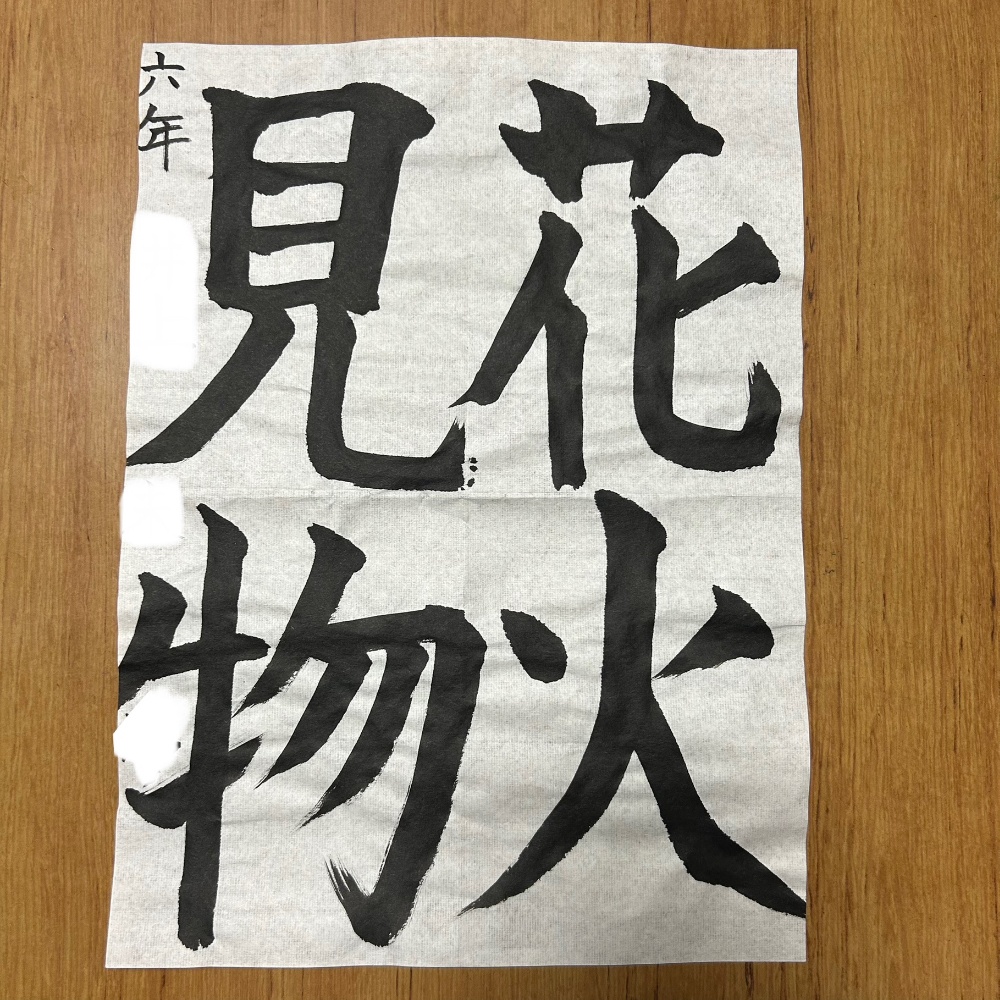 花火
見物
六年